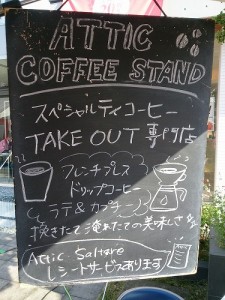 ATTIC
COFFEE STAND
スペシャルティコーヒー
TAKE OUT 専門店
フレンチプレス
ドリップコーヒー
ラテ&カプチーノ
挽きたて淹れたての美味しさを
Attic Saltare
レシートサービスあります